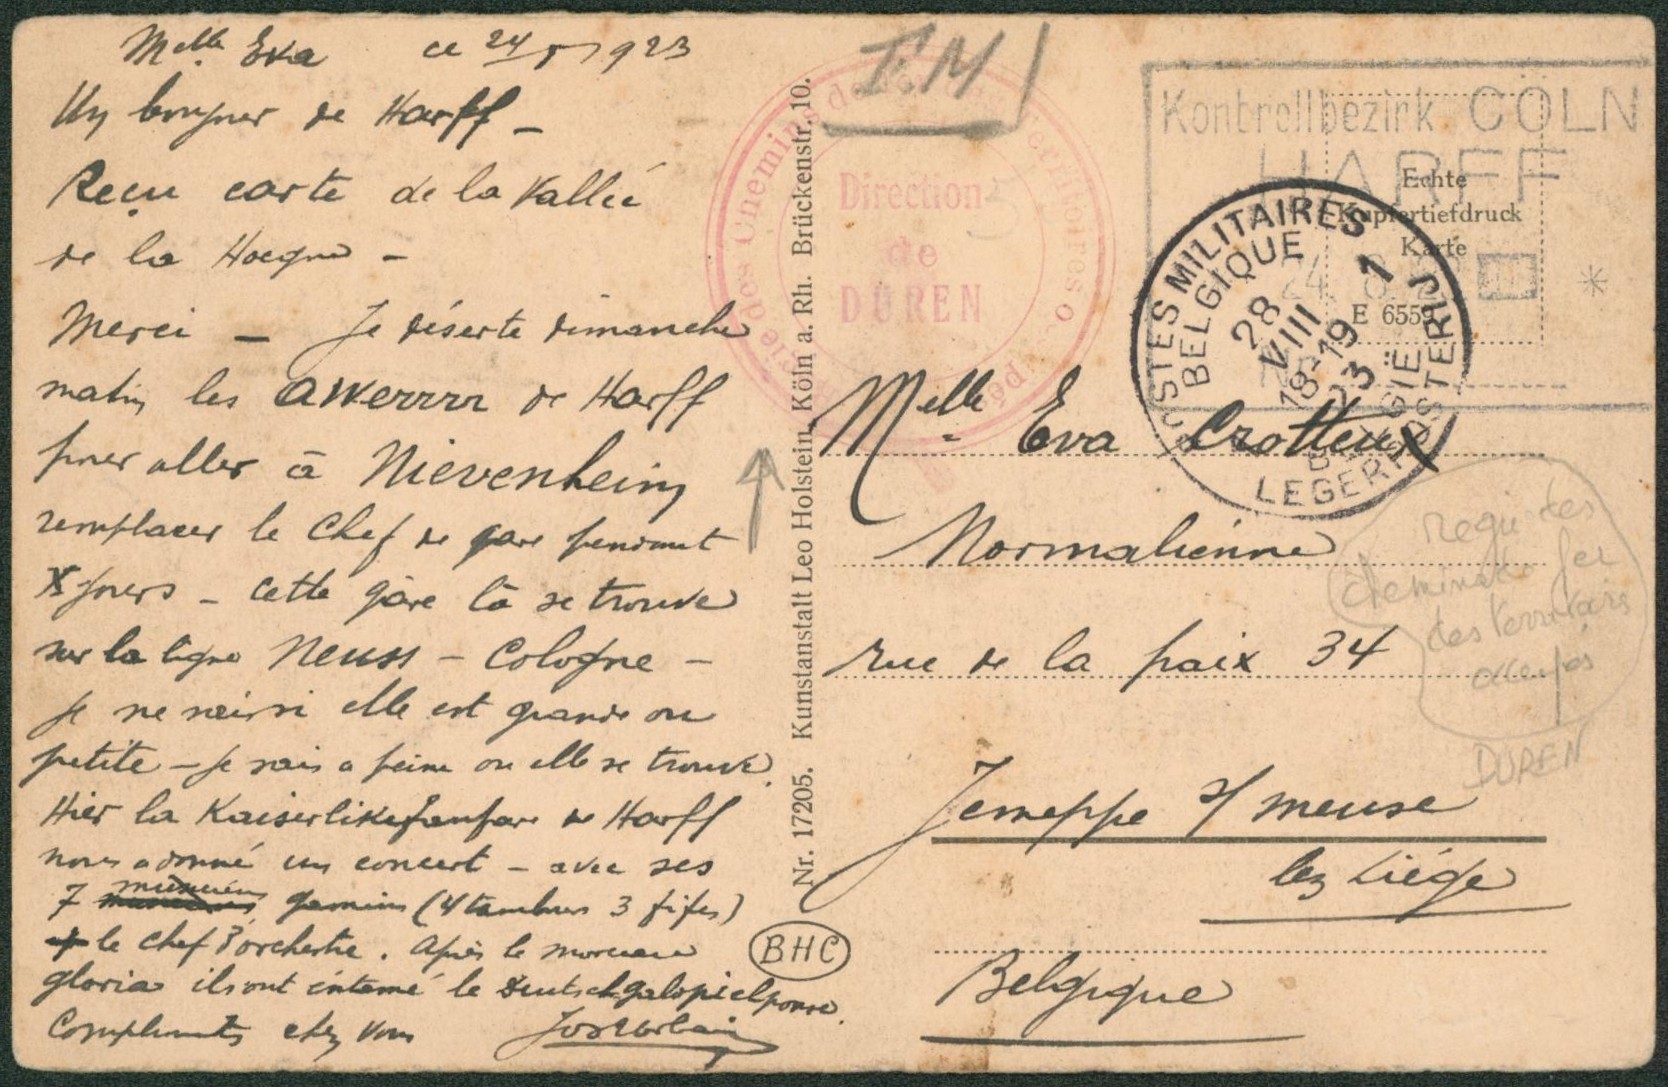 Melle Eva ce 24/8/1923
Un bonjour de Harff -
Reçu carte de la Vallée
de la Hoegne -
Merci - Je déserte dimanche
matin les de Harff
pour aller à Nievenheim
remplacer le Chef de gare pendant
X jours - cette gare là se trouve
sur la ligne Neuss - Cologne -
je ne sais si elle est grande ou
petite - je sais a peine ou elle se trouve.
Hier la Kaiserlikefanfare de Harff
nous a donné un concert - avec ses
7 musiciens gamins (4 tambours 3 fifres)
le chef d'orchestre. Après le morceau
gloria ils ont entamé le
Compliments chez vous
BHC
Nr. 17205. Kunstanstalt Leo Holstein, Köln a. Rh. Brückenstr. 10.
FM
Direction
de
DÜREN
Kontrollbezirk CÖLN
HARFF
Echte
Kupfertiefdruck
Karte
E 6559
POSTES MILITAIRES 1
BELGIQUE
28
VIII
18-19
23
BELGIË
LEGERPOSTERIJ
Melle Eva Crotteux
Normalienne
rue de la paix 34
Jemeppe s/ meuse
lez Liége
Belgique
Regie des
chemins de fer
des territoires
occupés
DUREN